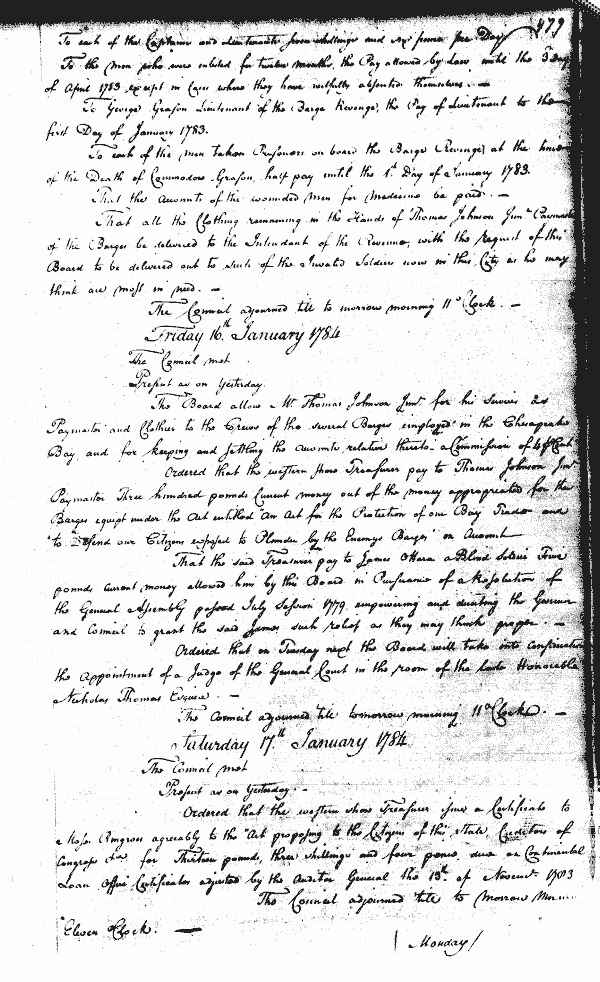 479
To each of the Captains and Lieutenants seven shillings and six pence per Day
To the men who were inlisted for twelve months, the Pay allowed by Law until the 3 day
of April 1783 except in Cases where they have wilfully absented themselves. —
To George Grason Lieutenant of the Barge Revenge, the Pay of Lieutenant to the
first Day of January 1783.
To each of the men taken Prisoners on board the Barge Revenge, at the time
of the Death of Commodore Grason, half pay until the 1st Day of January 1783.
That the Accounts of the wounded Men for Medicine be paid. —
That all the Cloathing remaining in the Hands of Thomas Johnson Junr
of the Barges be delivered to the Intendant of the Revenue, with the request of this
Board to be delivered out to such of the Invalid Soldiers now in this City as he may
think are most in need. —
The Council adjourned till to morrow morning 11 oClock. —
Friday 16th January 1784
The Council met
Present as on Yesterday.
The Board allow Mr. Thomas Johnson Junr. for his Services as
Paymaster and Clothier to the Crews of the several Barges employed in the Chesapeake
Bay, and for keeping and settling the accounts relative thereto a Commission of 4 p Cent
Ordered that the western shore Treasurer pay to Thomas Johnson Junr
Paymaster Three hundred pounds Current money out of the money appropriated for the
Barges equipt under the Act entitled "An Act for the Protection of our Bay Trade and
"to Defend our Citizens exposed to Plunder by the Enemys Barges" on Account
That the said Treasurer pay to James OHara a Blind Soldier Five
pounds current money allowed him by this Board in Pursuance of a Resolution of
the General Assembly passed July Session 1779, empowering and directing the Governor
and Council to grant the said James such relief as they may think proper. —
Ordered that on Tuesday next the Board will take into consideration
the Appointment of a Judge of the General Court in the room of the late Honorable
Nicholas Thomas Esquire. —
The Council adjourned till tomorrow morning 11 oClock. —
Saturday 17th January 1784
The Council met
Present as on Yesterday. —
Ordered that the western shore Treasurer issue a Certificate to
agreeably to the "Act proposing to the Citizens of this State, Creditors of
Congress &ca. for Thirteen pounds, three shillings and four pence, due on Continental
Loan Office Certificates adjusted by the Auditor General the 13th. of Novemr. 1783
The Council adjourned till to morrow Morn
Eleven oClock. —
| Monday /